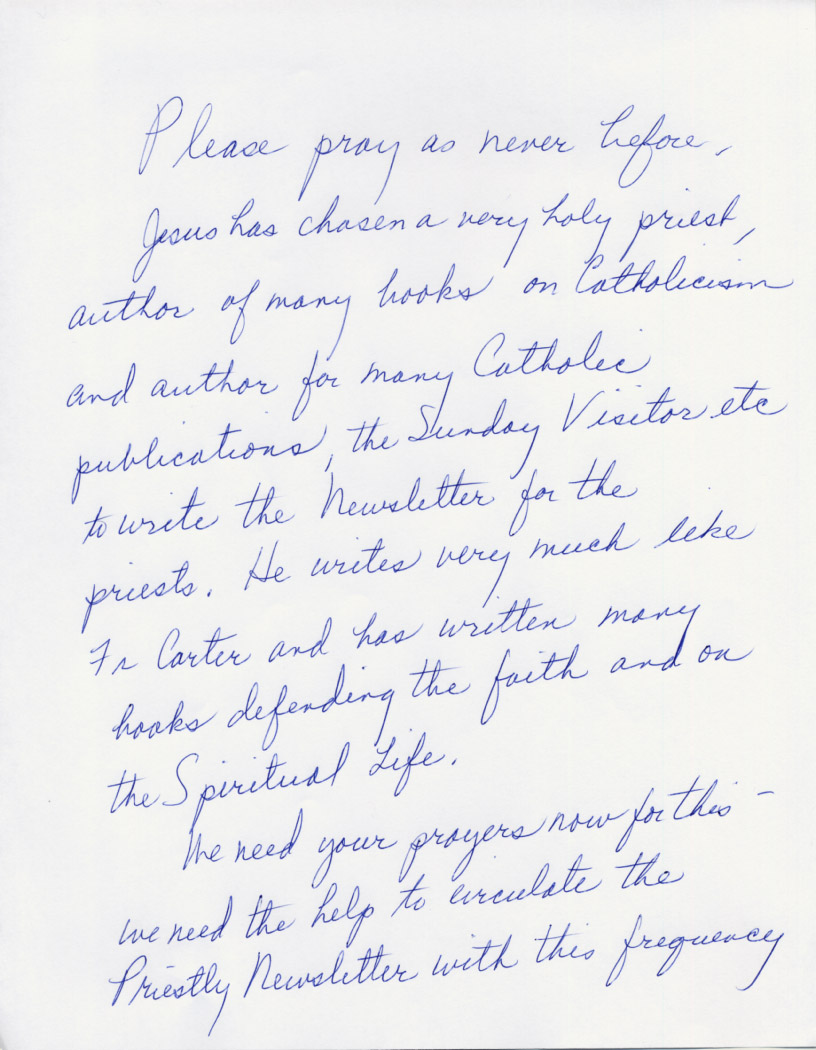 Please pray as never before,
Jesus has chosen a very holy priest,
author of many books on Catholicism
and author for many Catholic
publications, the Sunday Visitor etc
to write the Newsletter for the
priests. He writes very much like
Fr Carter and has written many
books defending the faith and on
the Spiritual Life.
We need your prayers now for this –
we need the help to circulate the
Priestly Newsletter with this frequency